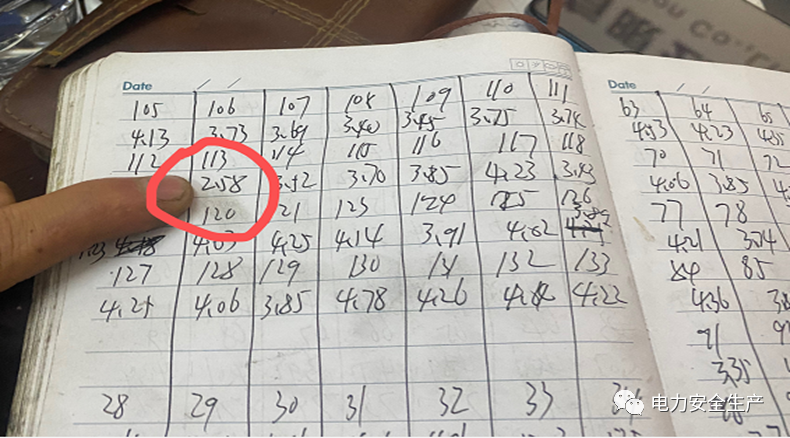 Date
105 106 107 108 109 110 111
4.13 3.73 3.69 3.40 3.45 3.75 3.74
112 113 114 115 116 117 118
2.58 3.12 3.70 3.85 4.23 3.43
120 121 123 124 125 126
4.03 4.25 4.14 3.91 4.02 3.89
127 128 129 130 131 132 133
4.21 4.06 3.85 4.78 4.26 4.22
28 29 30 31 32 33
Date
63 64 65
4.23
70 71 72
4.06 3.85
77 78
4.21
84 85
4.36
91
3.35
电力安全生产